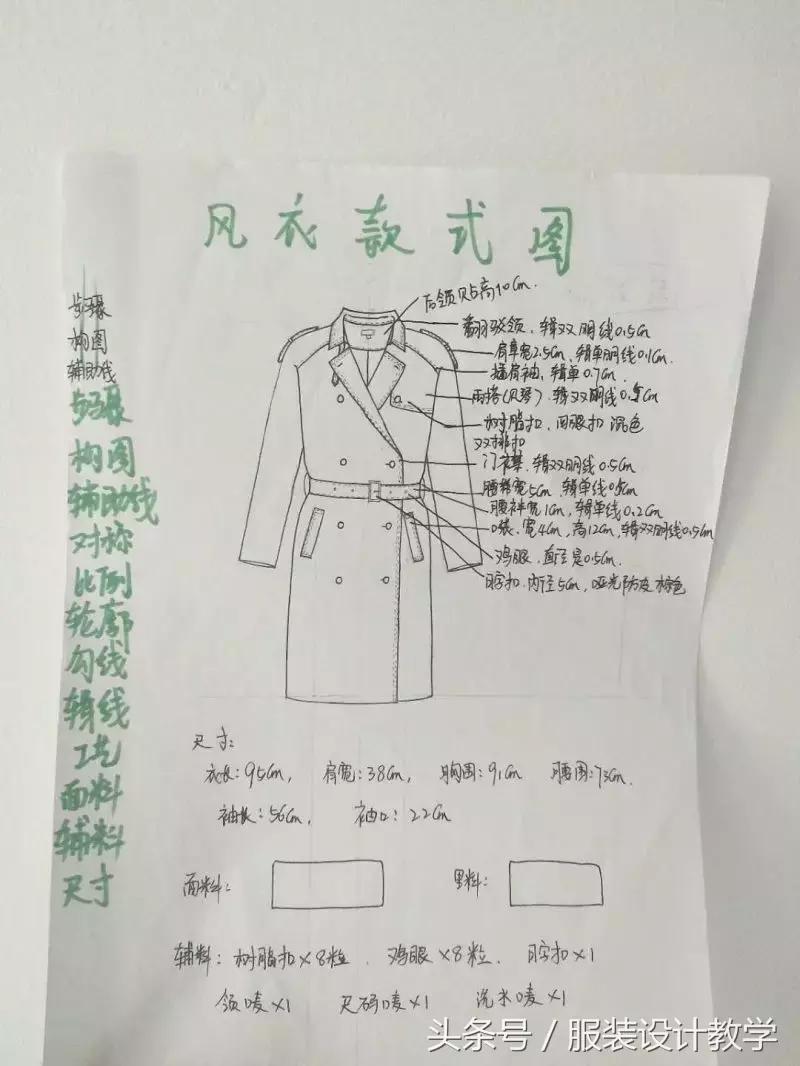 风衣款式图
步骤
构图
辅助线
步骤
构图
辅助线
对称
比例
轮廓
勾线
辑线
工艺
面料
辅料
尺寸
后领贝占高10cm.
翻驳领、辑双明线0.5cm
肩章宽2.5cm、辑单明线0.1cm.
插肩袖、辑单0.7cm
雨搭(贝等)、辑双明线0.5cm
树脂扣、四眼扣 沉色
双排扣
门襟、辑双明线0.5cm
腰带宽5cm、辑单线0.5cm
腰袢宽1cm、辑单线0.2cm
口袋、宽4cm,高12cm,辑双明线0.5cm
鸡眼、直径是0.5cm.
日字扣、内径5cm,哑光 棕色
尺寸:
衣长:95cm, 肩宽:38cm, 胸围:91cm 腰围:73cm.
袖长:56cm, 袖口:22cm
面料: 里料:
辅料:树脂扣×8粒、鸡眼×8粒、日字扣×1
领唛×1 尺码唛×1 洗水唛×1
头条号/服装设计教学